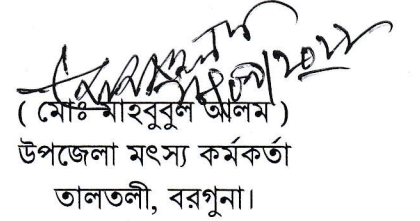 ( মোঃ মাহবুবুল আলম )
উপজেলা মৎস্য কর্মকর্তা
তালতলী, বরগুনা।